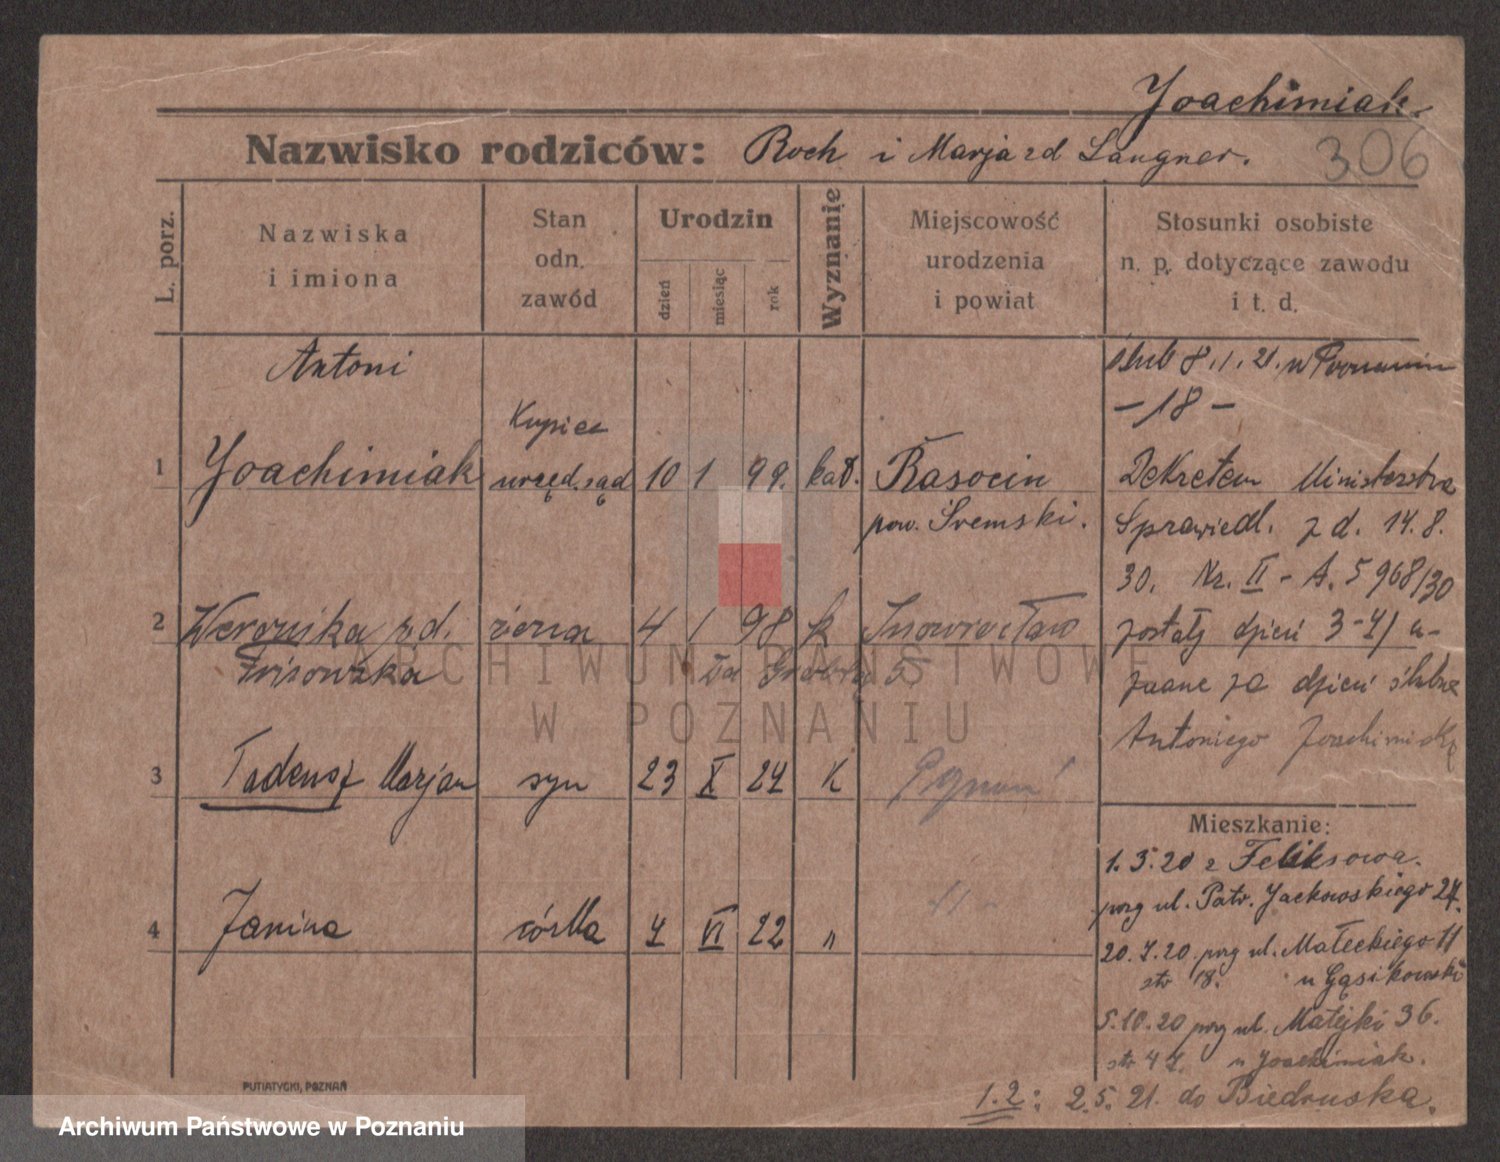 Joachimiak.
Nazwisko rodziców: Roch i Marja zd Langner.
306
L. porz.
Nazwiska
i imiona
Stan
odn.
zawód
Urodzin
dzień
miesiąc
rok
Wyznanie
Miejscowość
urodzenia
i powiat
Stosunki osobiste
n. p. dotyczące zawodu
i t. d.
Antoni
Kupiec
1 Joachimiak urzęd. sąd 10 1 99. kat. Rasocin
pow. Śremski.
ślub 8.1.21. w Poznaniu
- 18 -
Dekretem Ministerstwa
Sprawiedl. z d. 14.8.
30. Nr. II - A. 5968/30
został dzień 3-4/
za dzień
Antoniego
2 Weronika z d. żona 4 1 98 k Inowrocław
5
3 Tadeusz Marjan syn 23 X 24 K
4 Janina córka 4 VI 22 "
-11-
Mieszkanie:
1.5.20 z Feliksowa.
przy ul. Patr. Jackowskiego 27.
20.7.20. przy ul. Małeckiego 11
str 18. u Gąsikowski
5.10.20 przy ul. Matejki 36.
str 47. u Joachimiak.
1.2: 2.5.21. do Biedruska.
PUTIATYCKI, POZNAŃ
ARCHIWUM PAŃSTWOWE
W POZNANIU
Archiwum Państwowe w Poznaniu